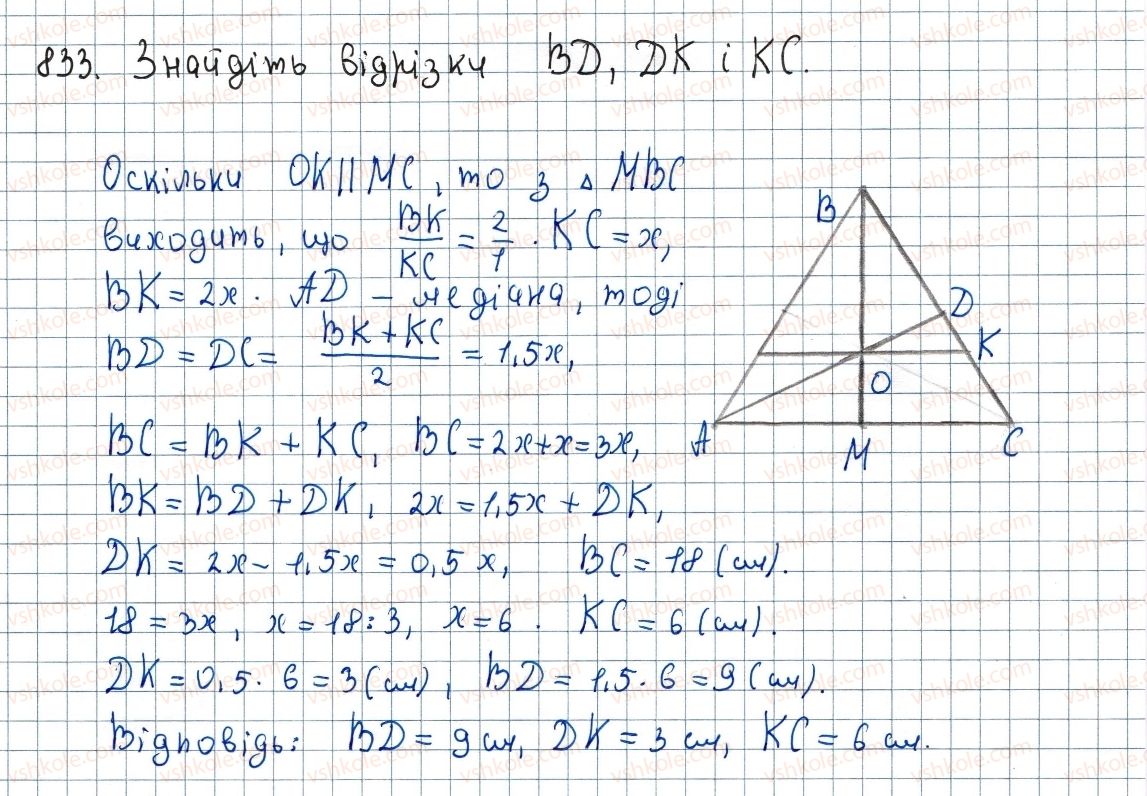 833. Знайдіть відрізки BD, DK і KC.
Оскільки OK||MC, то з △ MBC
виходить, що BK/KC = 2/1. KC = x,
BK = 2x. AD – медіана, тоді
BD = DC = (BK + KC)/2 = 1,5x,
BC = BK + KC, BC = 2x+x = 3x,
BK = BD + DK, 2x = 1,5x + DK,
DK = 2x – 1,5x = 0,5x, BC = 18 (см).
18 = 3x, x = 18:3, x = 6. KC = 6 (см).
DK = 0,5 · 6 = 3 (см), BD = 1,5 · 6 = 9 (см).
Відповідь: BD = 9 см, DK = 3 см, KC = 6 см.
B
D
K
O
A
M
C
vshkole.com